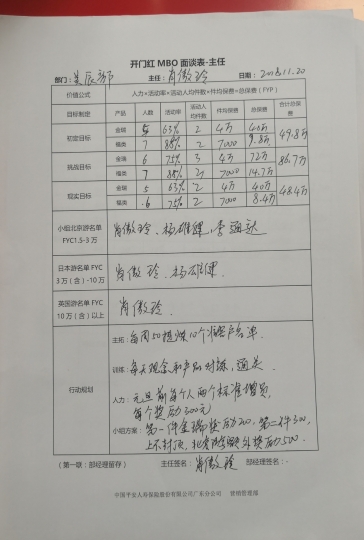 开门红 MBO 面谈表-主任
部门： 主任：肖傲玲 日期：2018.11.20
价值公式 人力×活动率×活动人均件数×件均保费=总保费（FYP）
目标制定 产品 人数 活动率 活动人均件数 件均保费 总保费 合计总保费
初定目标 金瑞 5 63% 2 4万 40万 49.8万
福类 7 88% 2 7000 9.8万
挑战目标 金瑞 6 75% 3 4万 72万 86.7万
福类 7 88% 7000 14.7万
现实目标 金瑞 5 63% 2 4万 40万 48.4万
福类 6 75% 2 7000 8.4万
小组北京游名单 FYC1.5-3 万 肖傲玲、杨雄健、李
日本游名单 FYC 3 万（含）-10 万 肖傲玲、杨雄健.
英国游名单 FYC 10 万（含）以上 肖傲玲.
行动规划
主拓：每周50 10个准客户名单.
训练：每天 和产品对练，通关
人力：元旦前每个人两个标准增员，
每个奖励300元
小组方案：第一件金瑞奖励200，第二件300，
上不封顶， 奖励500.
（第一联：部经理留存） 主任签名：肖傲玲 部经理签名：
中国平安人寿保险股份有限公司广东分公司 营销管理部